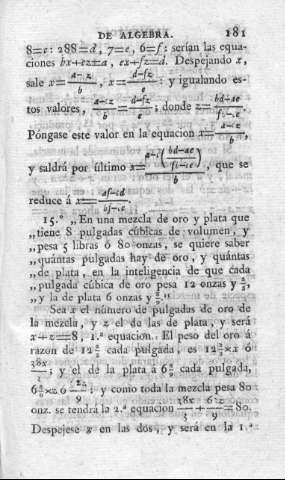 DE ALGEBRA. 181
8=c: 288=d, 7=e, 6=f: serían las equa-
ciones bx+cz=a, ex+fz=d. Despejando x,
sale x=\frac{a-cz}{b}, x=\frac{d-fz}{e}: y igualando es-
tos valores, \frac{a-cz}{b}=\frac{d-fz}{e}; donde z=\frac{bd-ae}{fb-ec}.
Póngase este valor en la equacion x=\frac{a-cz}{b},
y saldrá por último x=\frac{a-c(\frac{bd-ae}{fb-ec})}{b}, que se
reduce á x=\frac{af-cd}{bf-ce}.
15.° „En una mezcla de oro y plata que
„tiene 8 pulgadas cúbicas de volumen, y
„pesa 5 libras ó 80 onzas, se quiere saber
„quántas pulgadas hay de oro, y quántas
„de plata, en la inteligencia de que cada
„pulgada cúbica de oro pesa 12 onzas y \frac{2}{3},
„y la de plata 6 onzas y \frac{8}{9}.“
Sea x el número de pulgadas de oro de
la mezcla, y z el de las de plata, y será
x+z=8, 1.ª equacion. El peso del oro á
razon de 12\frac{2}{3} cada pulgada, es 12\frac{2}{3}×x ó
\frac{38x}{3}; y el de la plata á 6\frac{8}{9} cada pulgada,
6\frac{8}{9}×z ó \frac{62z}{9}: y como toda la mezcla pesa 80
onz. se tendrá la 2.ª equacion \frac{38x}{3}+\frac{62z}{9}=80.
Despejese x en las dos, y será en la 1.ª